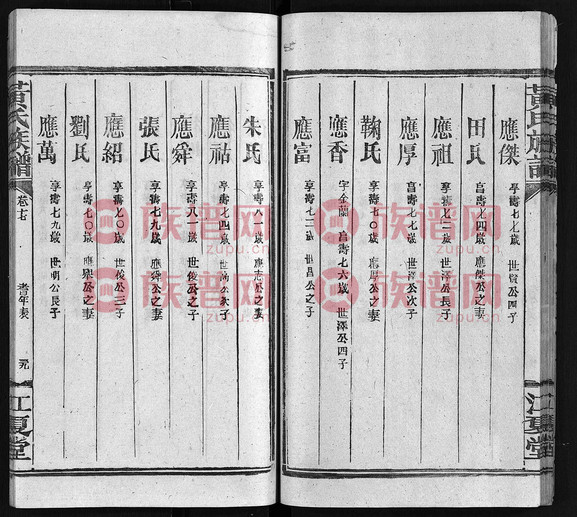 黃氏族譜
江夏堂
應傑 享壽七七歲 世賢公四子
田氏 享壽七四歲 應傑公之妻
應祖 享壽七二歲 世澤公長子
應厚 享壽七七歲 世澤公次子
鞠氏 享壽七〇歲 應厚公之妻
應香 字金蘭 享壽七六歲 世澤公四子
應富 享壽七二歲 世昌公之子
朱氏 享壽八一歲 應志公之妻
應祜 享壽七四歲 公次子
應舜 享壽八一歲 世俊公之子
張氏 享壽七九歲 應舜公之妻
應紹 享壽七〇歲 世俊公三子
劉氏 享壽七〇歲 應紹公之妻
應萬 享壽七九歲 世明公長子
黃氏族譜
卷七
耆年表
卅九
江夏堂
族譜网
zupu.cn
族譜网
zupu.cn
族譜网
zupu.cn
族譜网
zupu.cn